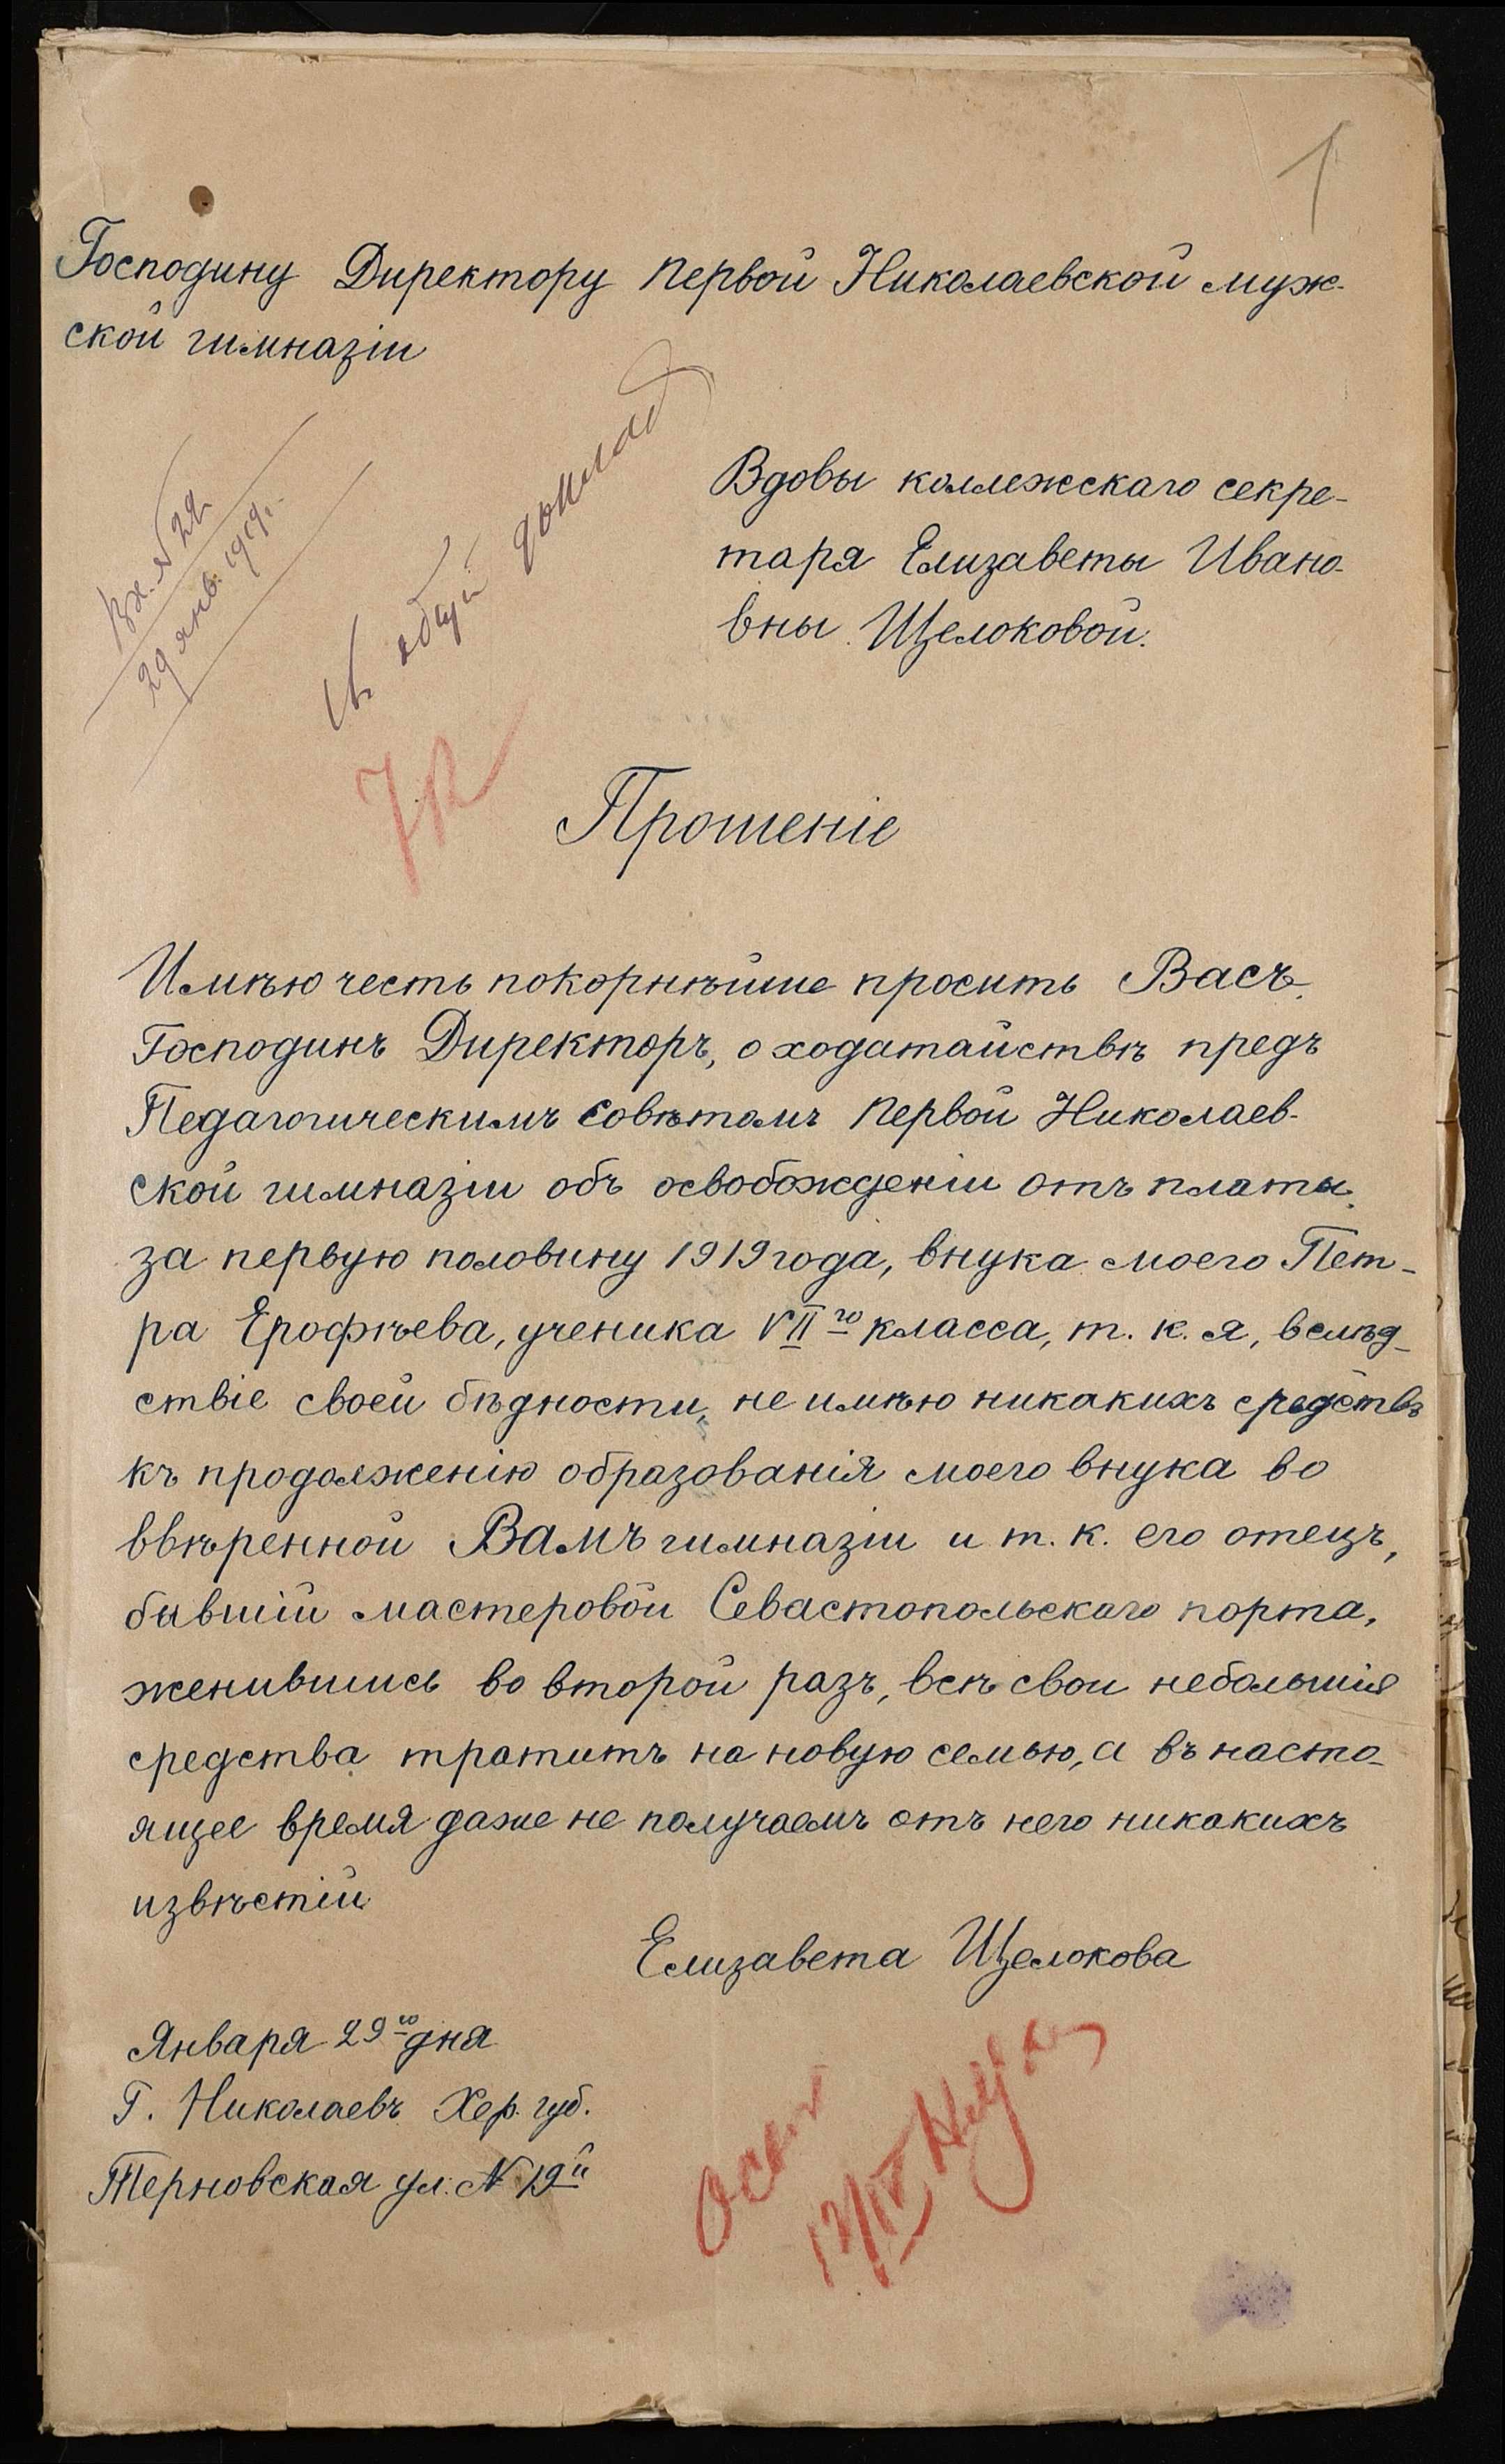 1
Господину Директору первой Николаевской муж-
ской гимназіи
Вх. № 22
29 янв. 1919 г.
Къ общей доклад
Вдовы коллежскаго секре-
таря Елизаветы Ивано-
вны Щелоковой.
Прошеніе
Имѣю честь покорнѣйше просить Васъ,
Господинъ Директоръ, о ходатайствѣ предъ
Педагогическимъ Совѣтомъ первой Николаев-
ской гимназіи объ освобожденіи отъ платы,
за первую половину 1919 года, внука моего Пет-
ра Ерофѣева, ученика VII го класса, т. к. я, вслѣд-
ствіе своей бѣдности, не имѣю никакихъ средствъ
къ продолженію образованія моего внука во
ввѣренной Вамъ гимназіи и т. к. его отецъ,
бывшій мастеровой Севастопольскаго порта,
женившись во второй разъ, всѣ свои небольшія
средства тратитъ на новую семью, а въ насто-
ящее время даже не получаемъ отъ него никакихъ
извѣстій
Елизавета Щелокова
Января 29 го дня
Г. Николаевъ Хер. губ.
Терновская ул. № 19 й
Осв.
12/IV